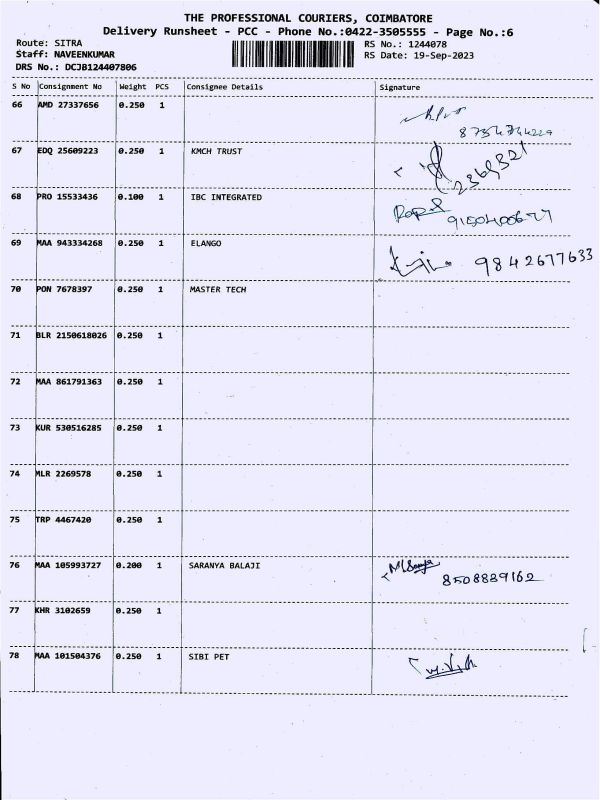 THE PROFESSIONAL COURIERS, COIMBATORE
Delivery Runsheet - PCC - Phone No.:0422-3505555 - Page No.:6
Route: SITRA
Staff: NAVEENKUMAR
DRS No.: DCJB124407806
RS No.: 1244078
RS Date: 19-Sep-2023
S No Consignment No Weight PCS Consignee Details Signature
66 AMD 27337656 0.250 1
67 EDQ 25609223 0.250 1 KMCH TRUST
2369321
68 PRO 15533436 0.100 1 IBC INTEGRATED
69 MAA 943334268 0.250 1 ELANGO
9842677633
70 PON 7678397 0.250 1 MASTER TECH
71 BLR 2150618026 0.250 1
72 MAA 861791363 0.250 1
73 KUR 530516285 0.250 1
74 MLR 2269578 0.250 1
75 TRP 4467420 0.250 1
76 MAA 105993727 0.200 1 SARANYA BALAJI
8508889162
77 KHR 3102659 0.250 1
78 MAA 101504376 0.250 1 SIBI PET